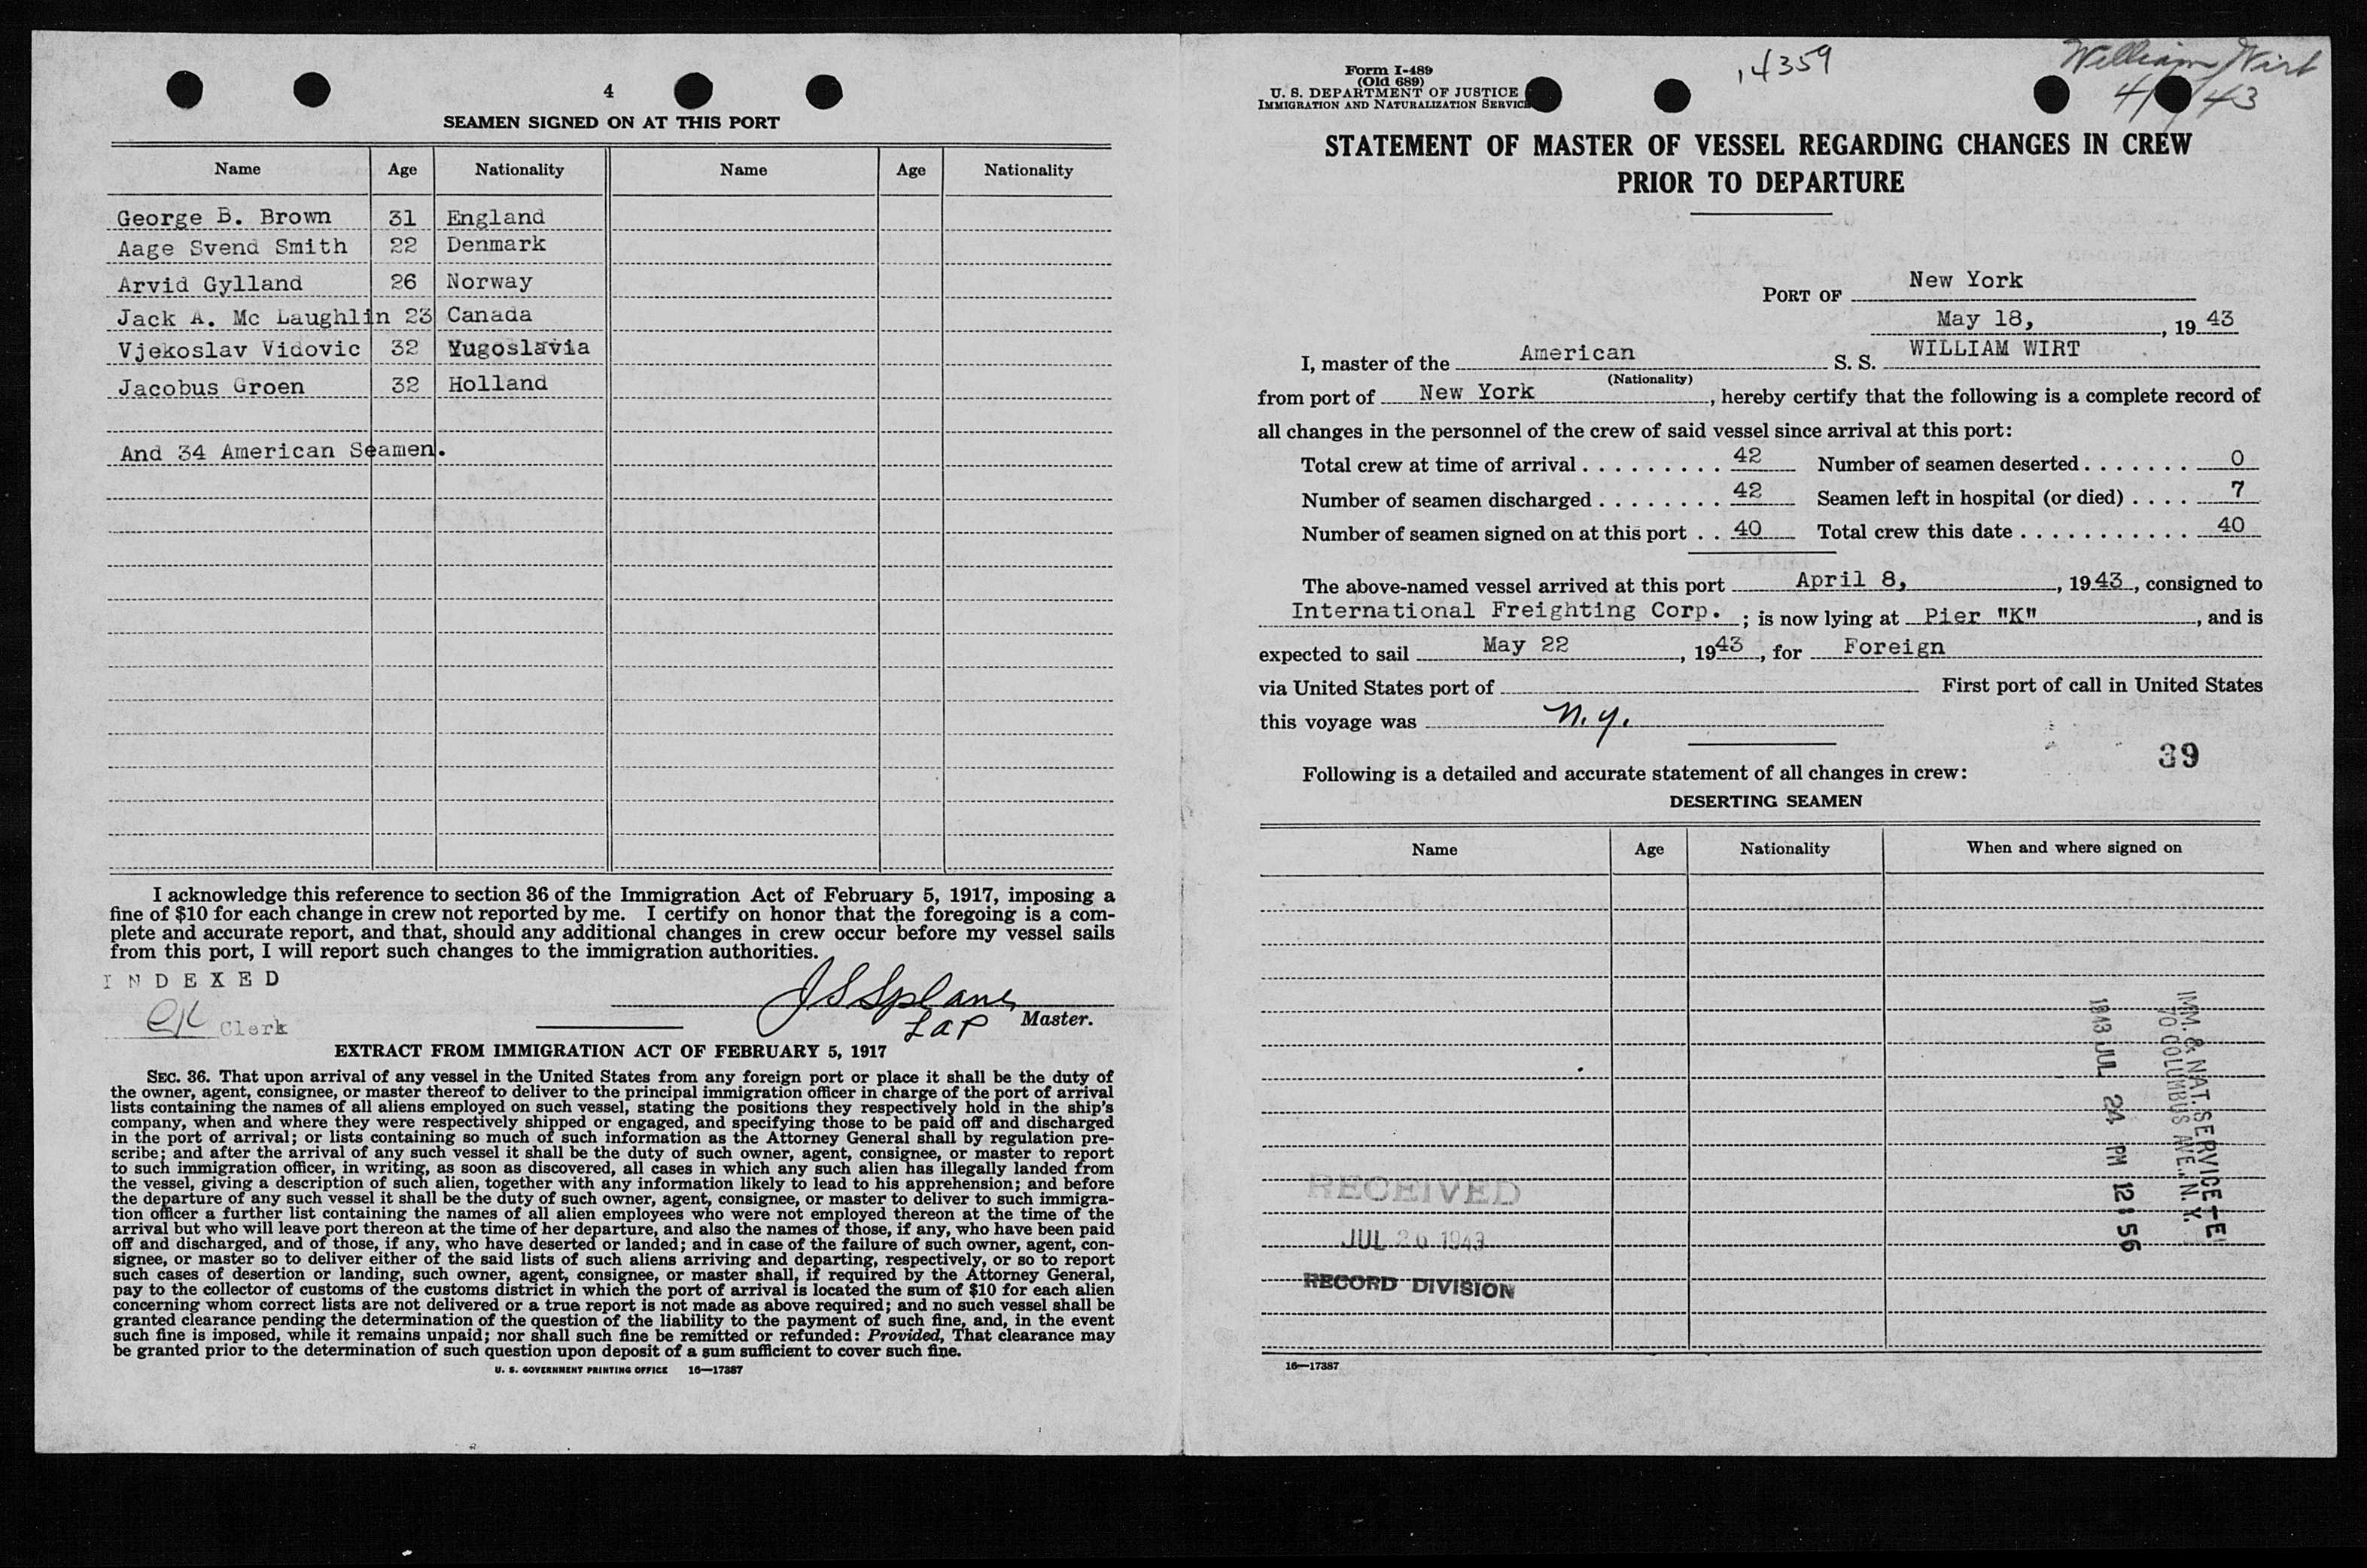 4
SEAMEN SIGNED ON AT THIS PORT
Name Age Nationality Name Age Nationality
George B. Brown 31 England
Aage Svend Smith 22 Denmark
Arvid Gylland 26 Norway
Jack A. Mc Laughlin 23 Canada
Vjekoslav Vidovic 32 Yugoslavia
Jacobus Groen 32 Holland
And 34 American Seamen.
I acknowledge this reference to section 36 of the Immigration Act of February 5, 1917, imposing a
fine of $10 for each change in crew not reported by me. I certify on honor that the foregoing is a com-
plete and accurate report, and that, should any additional changes in crew occur before my vessel sails
from this port, I will report such changes to the immigration authorities.
INDEXED
Clerk
J S Splane
Master.
EXTRACT FROM IMMIGRATION ACT OF FEBRUARY 5, 1917
SEC. 36. That upon arrival of any vessel in the United States from any foreign port or place it shall be the duty of
the owner, agent, consignee, or master thereof to deliver to the principal immigration officer in charge of the port of arrival
lists containing the names of all aliens employed on such vessel, stating the positions they respectively hold in the ship's
company, when and where they were respectively shipped or engaged, and specifying those to be paid off and discharged
in the port of arrival; or lists containing so much of such information as the Attorney General shall by regulation pre-
scribe; and after the arrival of any such vessel it shall be the duty of such owner, agent, consignee, or master to report
to such immigration officer, in writing, as soon as discovered, all cases in which any such alien has illegally landed from
the vessel, giving a description of such alien, together with any information likely to lead to his apprehension; and before
the departure of any such vessel it shall be the duty of such owner, agent, consignee, or master to deliver to such immigra-
tion officer a further list containing the names of all alien employees who were not employed thereon at the time of the
arrival but who will leave port thereon at the time of her departure, and also the names of those, if any, who have been paid
off and discharged, and of those, if any, who have deserted or landed; and in case of the failure of such owner, agent, con-
signee, or master so to deliver either of the said lists of such aliens arriving and departing, respectively, or so to report
such cases of desertion or landing, such owner, agent, consignee, or master shall, if required by the Attorney General,
pay to the collector of customs of the customs district in which the port of arrival is located the sum of $10 for each alien
concerning whom correct lists are not delivered or a true report is not made as above required; and no such vessel shall be
granted clearance pending the determination of the question of the liability to the payment of such fine, and, in the event
such fine is imposed, while it remains unpaid; nor shall such fine be remitted or refunded: Provided, That clearance may
be granted prior to the determination of such question upon deposit of a sum sufficient to cover such fine.
U. S. GOVERNMENT PRINTING OFFICE 16—17387
Form I-489
(Old 689)
U. S. DEPARTMENT OF JUSTICE
IMMIGRATION AND NATURALIZATION SERVICE
14359
William Wirt
STATEMENT OF MASTER OF VESSEL REGARDING CHANGES IN CREW
PRIOR TO DEPARTURE
PORT OF New York
May 18, , 19 43
I, master of the American S. S. WILLIAM WIRT
(Nationality)
from port of New York , hereby certify that the following is a complete record of
all changes in the personnel of the crew of said vessel since arrival at this port:
Total crew at time of arrival . . . . . . . . . 42 Number of seamen deserted . . . . . . . 0
Number of seamen discharged . . . . . . . . 42 Seamen left in hospital (or died) . . . . 7
Number of seamen signed on at this port . . 40 Total crew this date . . . . . . . . . . . 40
The above-named vessel arrived at this port April 8, , 1943 , consigned to
International Freighting Corp. ; is now lying at Pier "K" , and is
expected to sail May 22 , 1943 , for Foreign
via United States port of First port of call in United States
this voyage was N.Y.
39
Following is a detailed and accurate statement of all changes in crew:
DESERTING SEAMEN
Name Age Nationality When and where signed on
IMM. & NAT. SERVICE-E
70 COLUMBUS AVE., N.Y.
1943 JUL 24 PM 12:56
RECEIVED
JUL 26 1943
RECORD DIVISION
16—17387